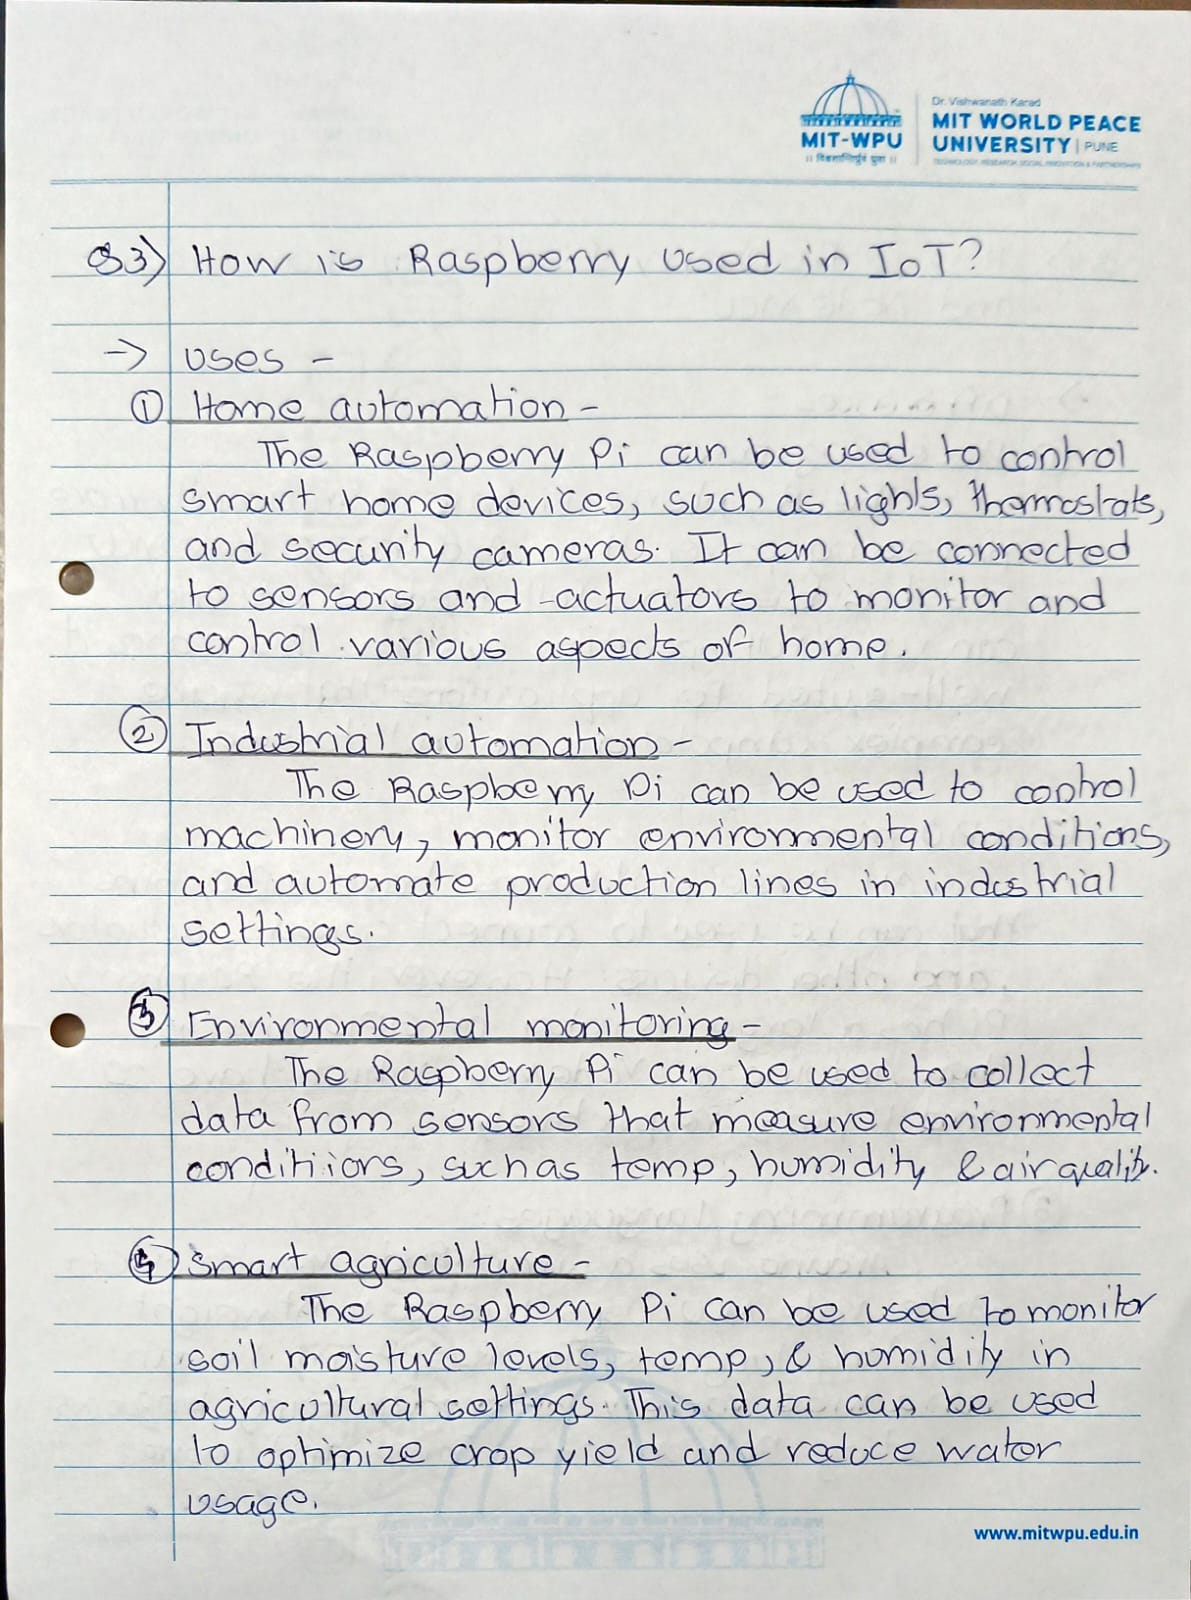 Dr. Vishwanath Karad
MIT WORLD PEACE
UNIVERSITY | PUNE
TECHNOLOGY, RESEARCH, SOCIAL INNOVATION & PARTNERSHIPS
MIT-WPU
Q3) How is Raspberry used in IoT?
-> uses -
① Home automation -
The Raspberry Pi can be used to control
smart home devices, such as lights, thermostats,
and security cameras. It can be connected
to sensors and actuators to monitor and
control various aspects of home.
② Industrial automation -
The Raspberry Pi can be used to control
machinery, monitor environmental conditions,
and automate production lines in industrial
settings.
③ Environmental monitoring -
The Raspberry Pi can be used to collect
data from sensors that measure environmental
conditions, such as temp, humidity & air quality.
④ Smart agriculture -
The Raspberry Pi can be used to monitor
soil moisture levels, temp, & humidity in
agricultural settings. This data can be used
to optimize crop yield and reduce water
usage.
www.mitwpu.edu.in